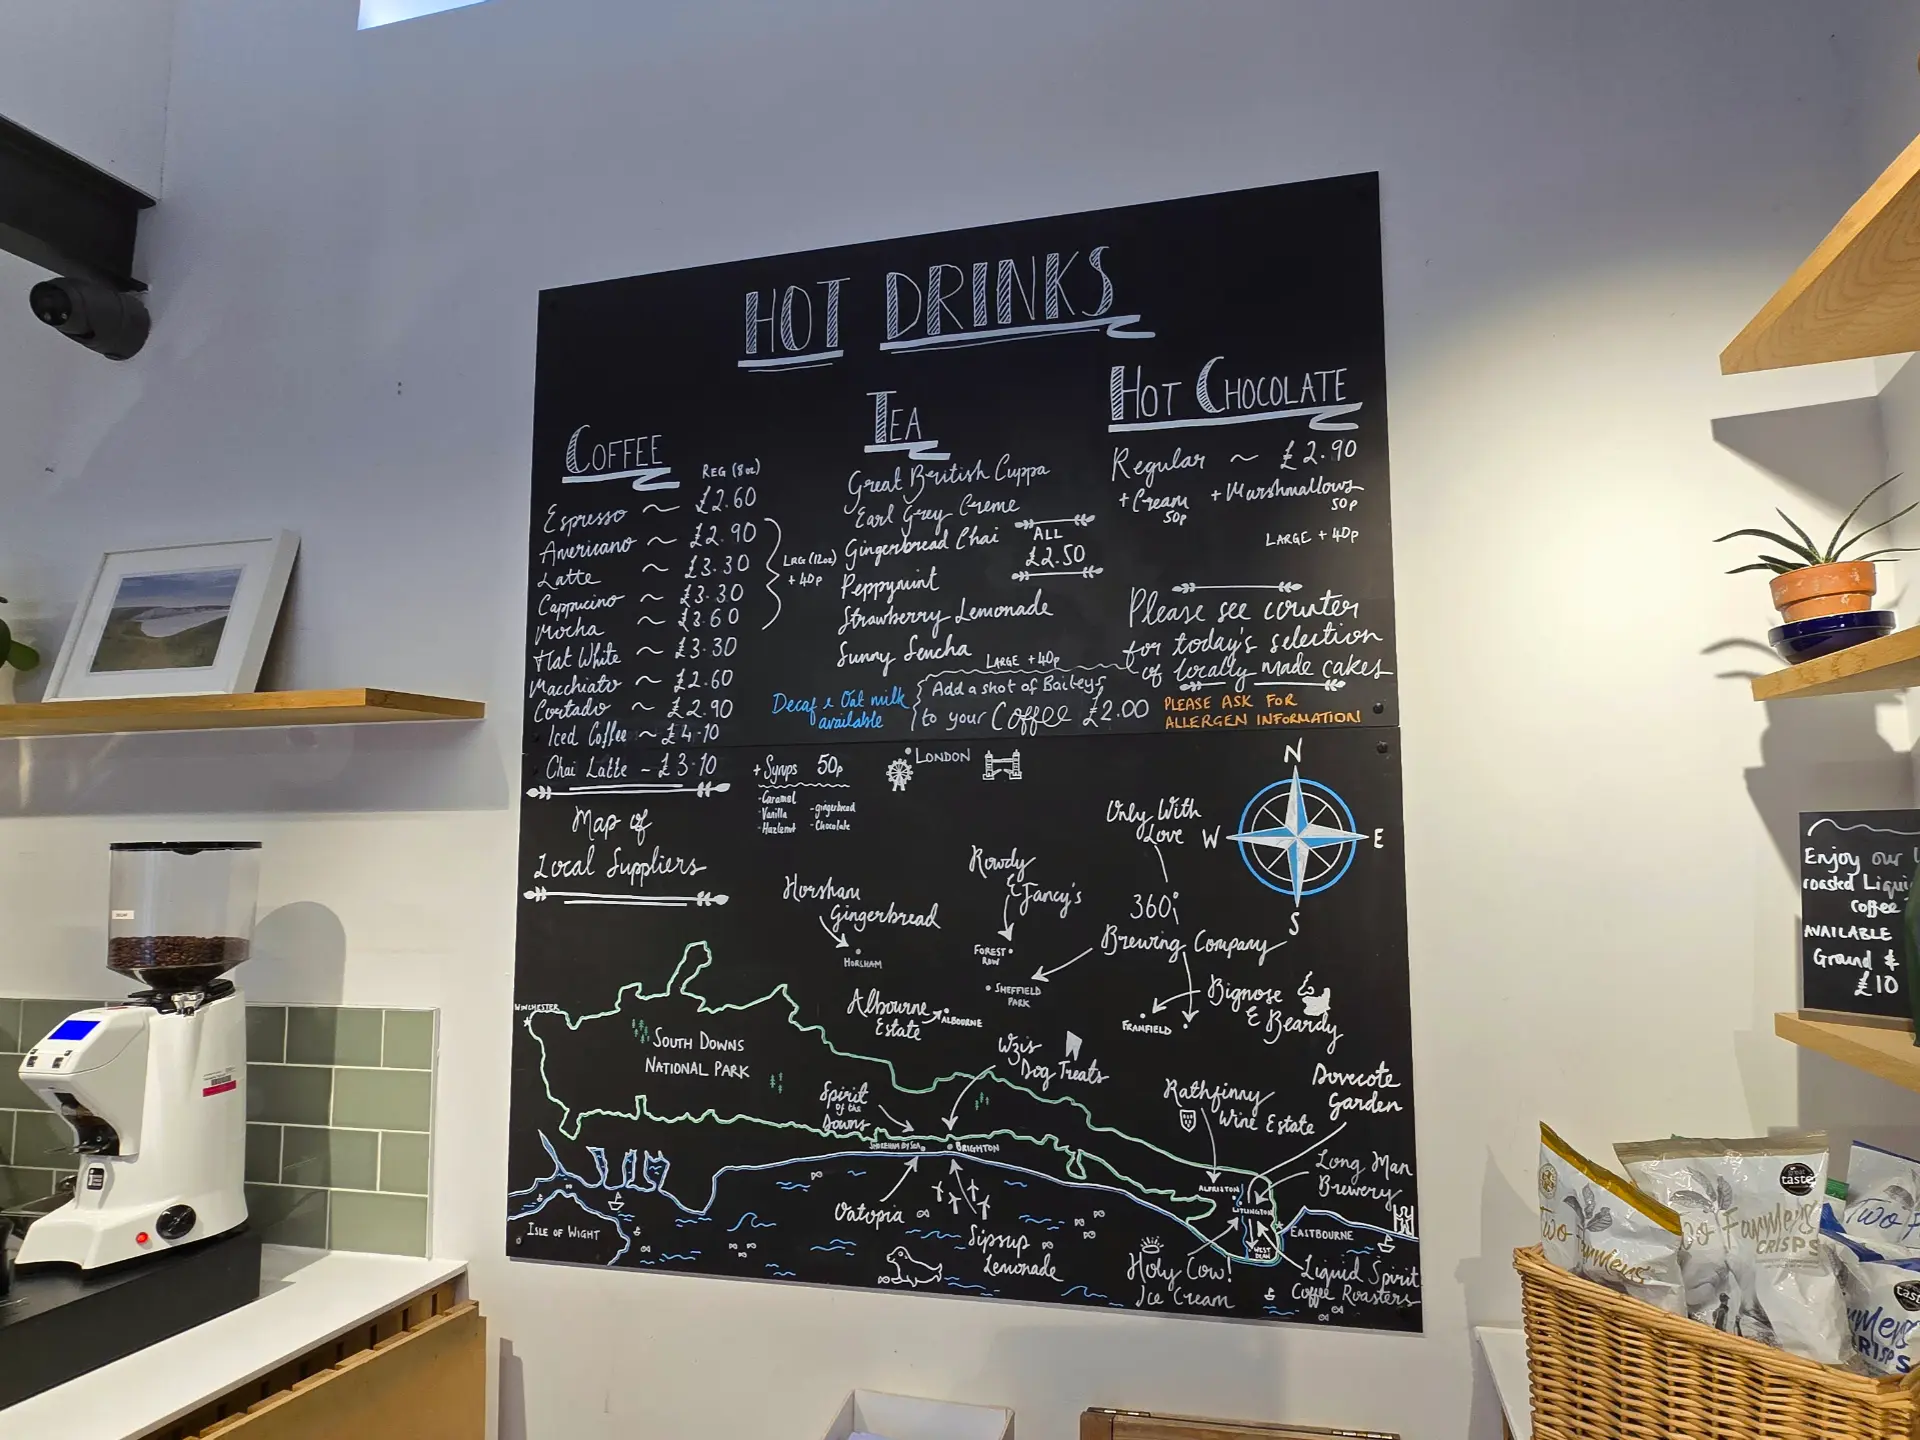 HOT DRINKS
COFFEE
REG (8oz)
Espresso ~ £2.60
Americano ~ £2.90
Latte ~ £3.30
Cappucino ~ £3.30
Mocha ~ £3.60
Flat White ~ £3.30
Macchiato ~ £2.60
Cortado ~ £2.90
Iced Coffee ~ £4.10
Chai Latte ~ £3.10
LRG (12oz)
+ 40p
TEA
Great British Cuppa
Earl Grey Creme
Gingerbread Chai
Peppymint
Strawberry Lemonade
Sunny Sencha
ALL
£2.50
LARGE + 40p
HOT CHOCOLATE
Regular ~ £2.90
+ Cream
50p
+ Marshmallows
50p
LARGE + 40p
Please see counter
for today's selection
of locally made cakes
Decaf & Oat milk
available
Add a shot of Baileys
to your Coffee £2.00
PLEASE ASK FOR
ALLERGEN INFORMATION
+ Syrups 50p
- Caramel
- Vanilla
- Hazlenut
- gingerbread
- Chocolate
Map of
Local Suppliers
LONDON
N
W
E
S
Only With
Love
Rowdy
& Fancy's
Horsham
Gingerbread
HORSHAM
FOREST
ROW
360°
Brewing Company
SHEFFIELD
PARK
Albourne
Estate
ALBOURNE
Bignose
& Beardy
FRAMFIELD
WINCHESTER
SOUTH DOWNS
NATIONAL PARK
Wzis
Dog Treats
Spirit
of the
Downs
SHOREHAM BY SEA
BRIGHTON
Rathfinny
Wine Estate
Dovecote
Garden
Long Man
Brewery
ALFRISTON
LITLINGTON
WEST
DEAN
EASTBOURNE
ISLE OF WIGHT
Vatopia
Sipsup
Lemonade
Holy Cow!
Ice Cream
Liquid Spirit
Coffee Roasters
Enjoy our
roasted
coffee
AVAILABLE
Ground &
£10
Two Farmers
Two Farmers
CRISPS
great
taste
Two